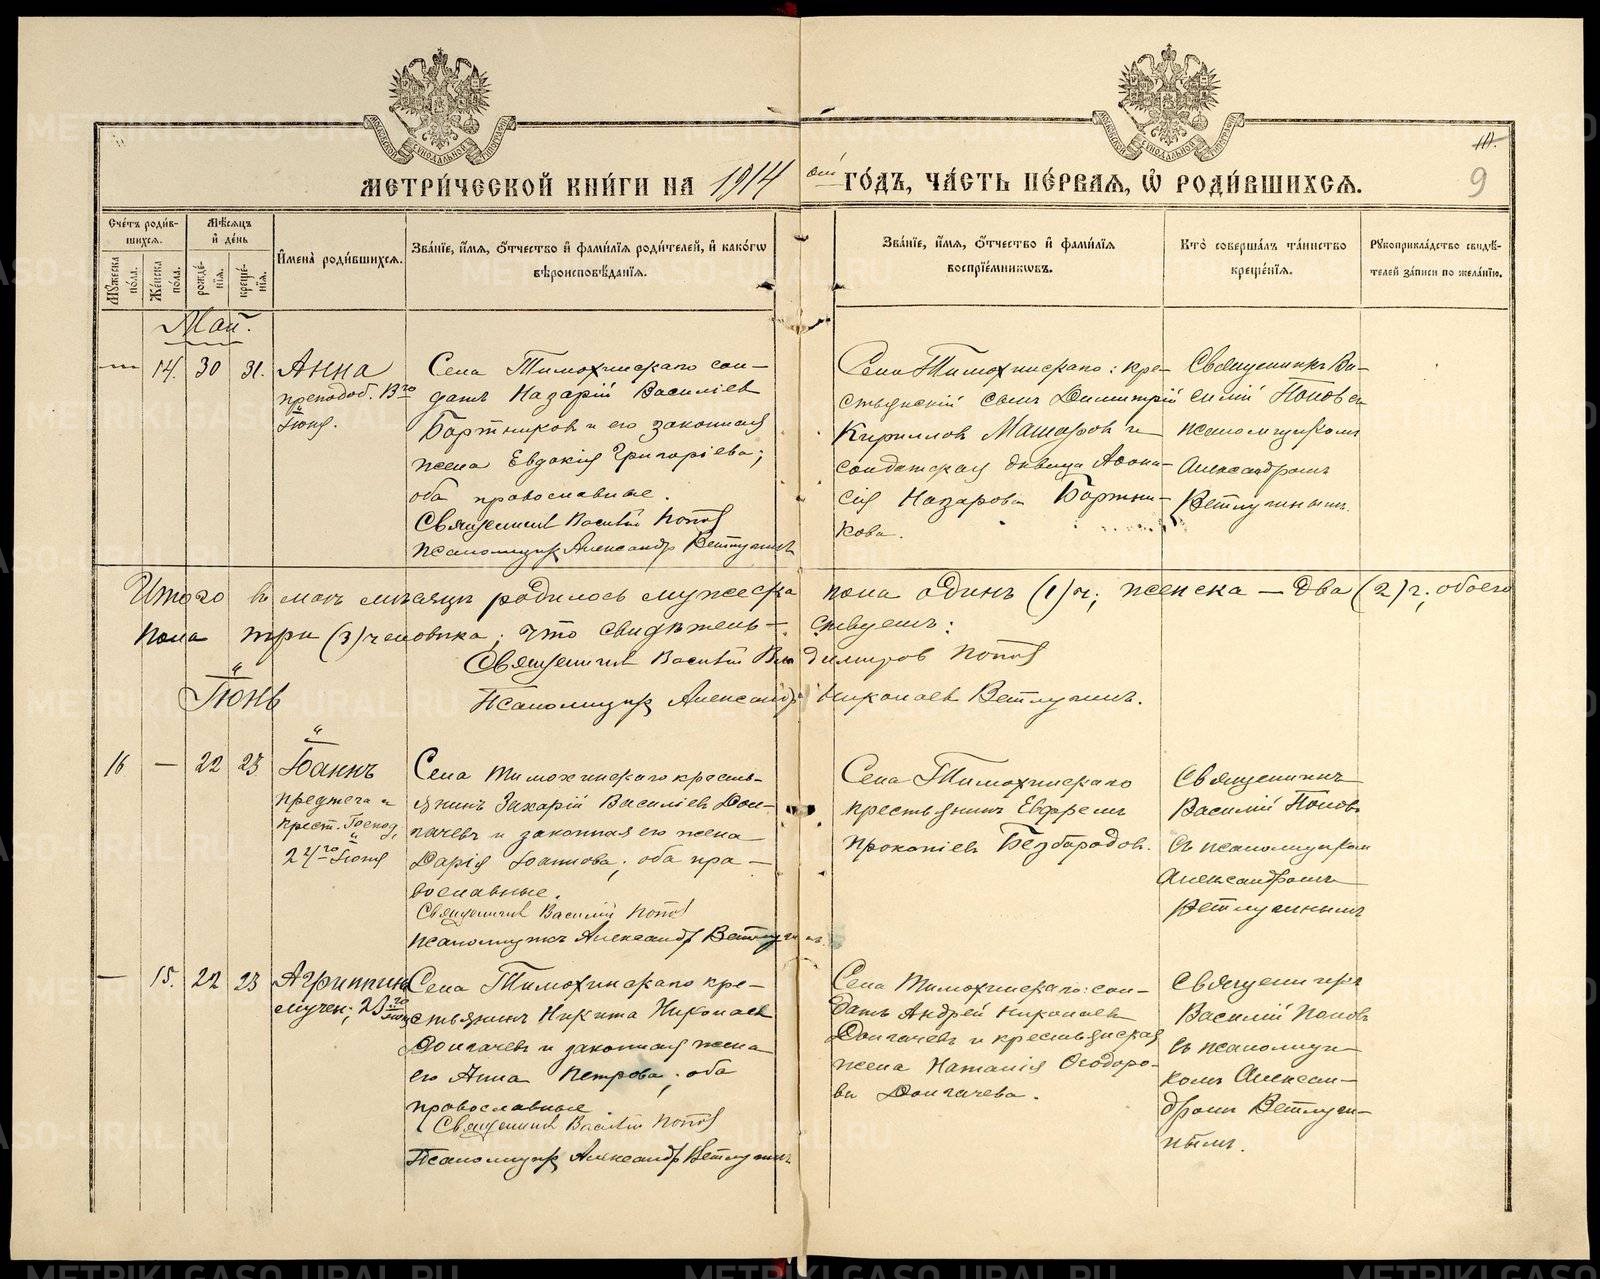 МЕТРИЧЕСКОЙ КНИГИ НА 1914 ый ГОДЪ, ЧАСТЬ ПЕРВАЯ, Ѽ РОДИВШИХСѦ.
9
Счетъ родив-
шихсѧ.
Мѣсѧцъ
и день
Мꙋжеска
пола.
Женска
пола.
рожде-
нїѧ.
креще-
нїѧ.
Имена родившихсѧ.
Званїе, имѧ, ѻтчество и фамилїѧ родителей, и какогѡ
вѣроисповѣданїѧ.
Званїе, имѧ, ѻтчество и фамилїѧ
воспрїемникѡвъ.
Кто совершалъ таинство
крещенїѧ.
Рꙋкоприкладство свидѣ-
телей записи по желанїю.
Май.
— 14. 30 31.
Анна
преподоб. 13го
Іюня.
Села Тимохинскаго сол-
датъ Назарій Василіевъ
Бортниковъ и его законная
жена Евдокія Григоріева;
оба православные.
Священникъ Василій Поповъ
Псаломщикъ Александръ Ветлугинъ
Села Тимохинскаго: кре-
стьянскій сынъ Димитрій
Кирилловъ Машаровъ и
солдатская дѣвица Афана-
сія Назарова Бортни-
кова.
Священникъ Ва-
силій Поповъ съ
псаломщикомъ
Александромъ
Ветлугинымъ.
Итого въ маѣ мѣсяцѣ родилось мужеска пола одинъ (1) ч.; женска — два (2) ч.; обоего
пола три (3) человѣка; что свидѣтель- ствуемъ:
Священникъ Василій Владиміровъ Поповъ
Псаломщикъ Александръ Николаевъ Ветлугинъ.
Іюнь
16 — 22 23
Іоаннъ
предтеча и
крест. Господ.
24го Іюня
Села Тимохинскаго кресть-
янинъ Захарій Василіевъ Дол-
гачевъ и законная его жена
Дарія Іоаннова; оба пра-
вославные.
Священникъ Василій Поповъ
Псаломщикъ Александръ Ветлугинъ.
Села Тимохинскаго
крестьянинъ Евфремъ
Прокопіевъ Безбородовъ.
Священникъ
Василій Поповъ
съ псаломщикомъ
Александромъ
Ветлугинымъ
— 15. 22 23
Агриппина
мучен.; 23го Іюня
Села Тимохинскаго кре-
стьянинъ Никита Николаевъ
Долгачевъ и законная жена
его Анна Петрова; оба
православные.
Священникъ Василій Поповъ
Псаломщикъ Александръ Ветлугинъ
Села Тимохинскаго: сол-
датъ Андрей Николаевъ
Долгачевъ и крестьянская
жена Наталія Ѳеодоро-
ва Долгачева.
Священникъ
Василій Поповъ
съ псаломщи-
комъ Алексан-
дромъ Ветлугин-
нымъ.
METRIKI.GASO-URAL.RU